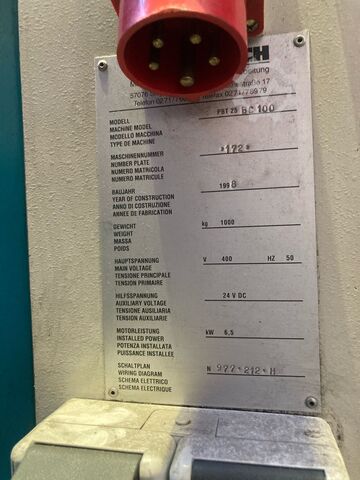 CH
Telefon 0271/7 Telefax 0271/76979
MODELL
MACHINE MODEL
MODELLO MACCHINA
TYPE DE MACHINE
PBT 25 BC 100
MASCHINENNUMMER
NUMBER PLATE
NUMERO MATRICOLA
NUMERO MATRICULE
*172*
BAUJAHR
YEAR OF CONSTRUCTION
ANNO DI COSTRUZIONE
ANNEE DE FABRICATION
1998
GEWICHT
WEIGHT
MASSA
POIDS
kg 1000
HAUPTSPANNUNG
MAIN VOLTAGE
TENSIONE PRINCIPALE
TENSION PRIMAIRE
V 400 HZ 50
HILFSSPANNUNG
AUXILIARY VOLTAGE
TENSIONE AUSILIARIA
TENSION AUXILIARIE
24 V DC
MOTORLEISTUNG
INSTALLED POWER
POTENZA INSTALLATA
PUISSANCE INSTALLEE
kW 6,5
SCHALTPLAN
WIRING DIAGRAM
SCHEMA ELETTRICO
SCHEMA ELECTRIQUE
N 977*212*H